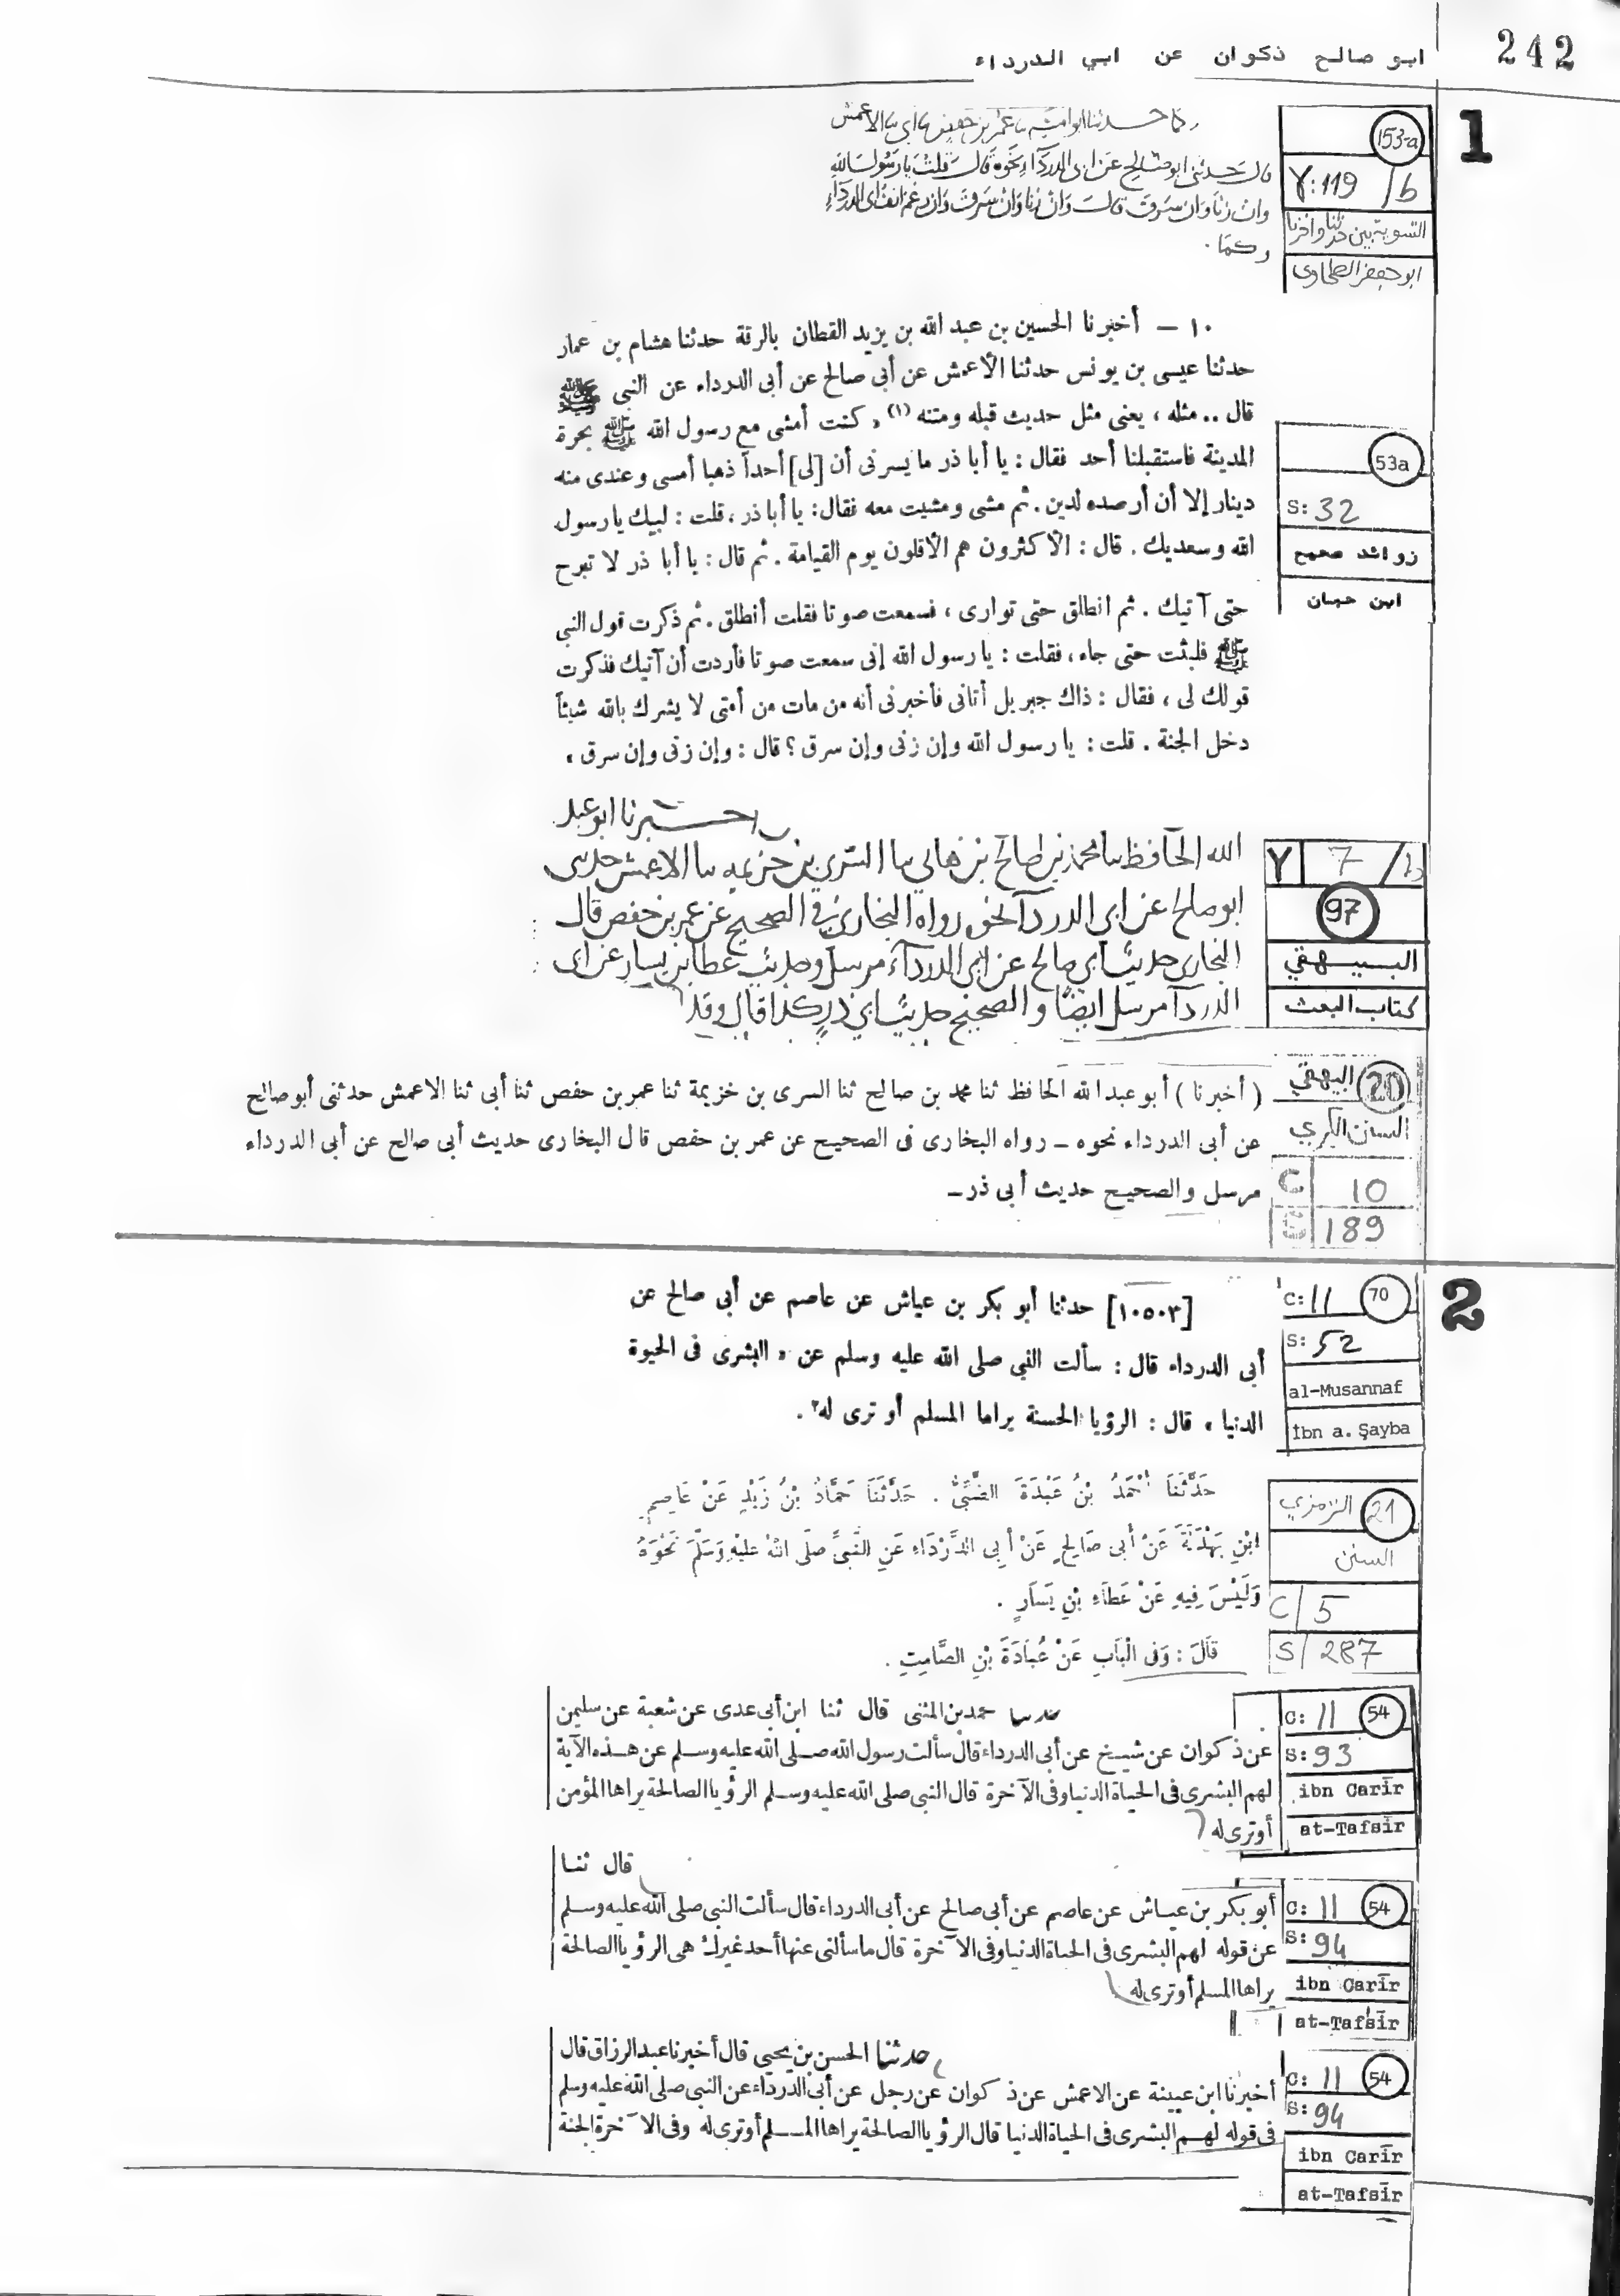 242
ابو صالح ذكوان عن ابي الدرداء
1
153-a
Y: 119 /b
التسوية بين حدثنا واخبرنا
ابو جعفر الطحاوى
حدثنا ابو امية نا عمر بن حفص نا ابى نا الاعمش
قال حدثنى ابو صالح عن ابى الدرداء نحوه قال قلت يا رسول الله
وان زنا وان سرق قال وان زنا وان سرق وان رغم انف ابى الدرداء
وكما
53a
S: 32
زوائد صحيح
ابن حبان
١٠ – أخبرنا الحسين بن عبد الله بن يزيد القطان بالرقة حدثنا هشام بن عمار
حدثنا عيسى بن يونس حدثنا الأعمش عن أبى صالح عن أبى الدرداء عن النبى ﷺ
قال .. مثله ، يعنى مثل حديث قبله ومتنه (١) « كنت أمشى مع رسول الله ﷺ بحرة
المدينة فاستقبلنا أحد فقال : يا أبا ذر ما يسرنى أن [لى] أحداً ذهبا أمسى وعندى منه
دينار إلا أن أرصده لدين . ثم مشى ومشيت معه فقال : يا أبا ذر ، قلت : لبيك يا رسول
الله وسعديك . قال : الأكثرون هم الأقلون يوم القيامة . ثم قال : يا أبا ذر لا تبرح
حتى آتيك . ثم انطلق حتى توارى ، فسمعت صوتا فقلت أنطلق . ثم ذكرت قول النبى
ﷺ فلبثت حتى جاء ، فقلت : يا رسول الله إنى سمعت صوتا فأردت أن آتيك فذكرت
قولك لى ، فقال : ذاك جبريل أتانى فأخبرنى أنه من مات من أمتى لا يشرك بالله شيئاً
دخل الجنة . قلت : يا رسول الله وإن زنى وإن سرق ؟ قال : وإن زنى وإن سرق »
Y 7 /b
97
البيهقي
كتاب البعث
اخبرنا ابو عبد
الله الحافظ نا محمد بن صالح بن هانى نا السرى بن خزيمه نا الاعمش حدثنى
ابو صالح عن ابى الدرداء نحوه رواه البخارى فى الصحيح عن عمر بن حفص قال
البخارى حديث ابى صالح عن ابى الدرداء مرسل وحديث عطا بن يسار عن ابى
الدرداء مرسل ايضا والصحيح حديث ابى ذر كذا قال وقد
20
البيهقي
السنن الكبري
C 10
S 189
( أخبرنا ) أبو عبد الله الحافظ ثنا محمد بن صالح ثنا السرى بن خزيمة ثنا عمر بن حفص ثنا أبى ثنا الاعمش حدثنى أبو صالح
عن أبى الدرداء نحوه – رواه البخارى فى الصحيح عن عمر بن حفص قال البخارى حديث أبى صالح عن أبى الدرداء
مرسل والصحيح حديث أبى ذر –
2
C: 11 70
S: 52
al-Musannaf
İbn a. Şayba
[١٠٥٠٣] حدثنا أبو بكر بن عياش عن عاصم عن أبى صالح عن
أبى الدرداء قال : سألت النبى صلى الله عليه وسلم عن « البشرى فى الحيوة
الدنيا » قال : الرؤيا الحسنة يراها المسلم أو ترى له٢ .
21
الترمزي
السنن
C/ 5
S/ 287
حَدَّثَنَا أَحْمَدُ بْنُ عَبْدَةَ الضَّبِّىُّ . حَدَّثَنَا حَمَّادُ بْنُ زَيْدٍ عَنْ عَاصِمِ
ابْنِ بَهْدَلَةَ عَنْ أَبِى صَالِحٍ عَنْ أَبِى الدَّرْدَاءِ عَنِ النَّبِىِّ صَلَّى اللهُ عَلَيْهِ وَسَلَّمَ نَحْوَهُ
وَلَيْسَ فِيهِ عَنْ عَطَاءِ بْنِ يَسَارٍ .
قَالَ : وَفِى الْبَابِ عَنْ عُبَادَةَ بْنِ الصَّامِتِ .
C: 11 54
S: 93
ibn Carīr
at-Tafsīr
حدثنا محمد بن المثنى قال ثنا ابن أبى عدى عن شعبة عن سليمن
عن ذكوان عن شيخ عن أبى الدرداء قال سألت رسول الله صلى الله عليه وسلم عن هذه الآية
لهم البشرى فى الحياة الدنيا وفى الآخرة قال النبى صلى الله عليه وسلم الرؤيا الصالحة يراها المؤمن
أو ترى له
قال ثنا
C: 11 54
S: 94
ibn Carīr
at-Tafsīr
أبو بكر بن عياش عن عاصم عن أبى صالح عن أبى الدرداء قال سألت النبى صلى الله عليه وسلم
عن قوله لهم البشرى فى الحياة الدنيا وفى الآخرة قال ما سألنى عنها أحد غيرك هى الرؤيا الصالحة
يراها المسلم أو ترى له
C: 11 54
S: 94
ibn Carīr
at-Tafsīr
حدثنا الحسن بن يحيى قال أخبرنا عبد الرزاق قال
أخبرنا ابن عيينة عن الاعمش عن ذكوان عن رجل عن أبى الدرداء عن النبى صلى الله عليه وسلم
فى قوله لهم البشرى فى الحياة الدنيا قال الرؤيا الصالحة يراها المسلم أو ترى له وفى الآخرة الجنة